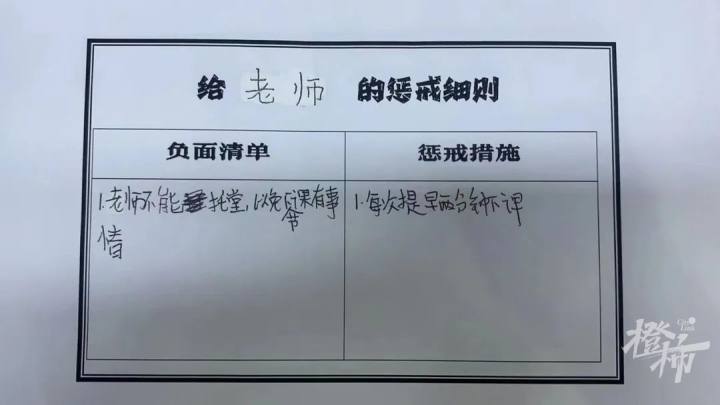 给 老师 的惩戒细则
负面清单
惩戒措施
1.老师不能拖堂,以免下节课有事
情
1.每次提早两分钟下课
橙柿
City Link